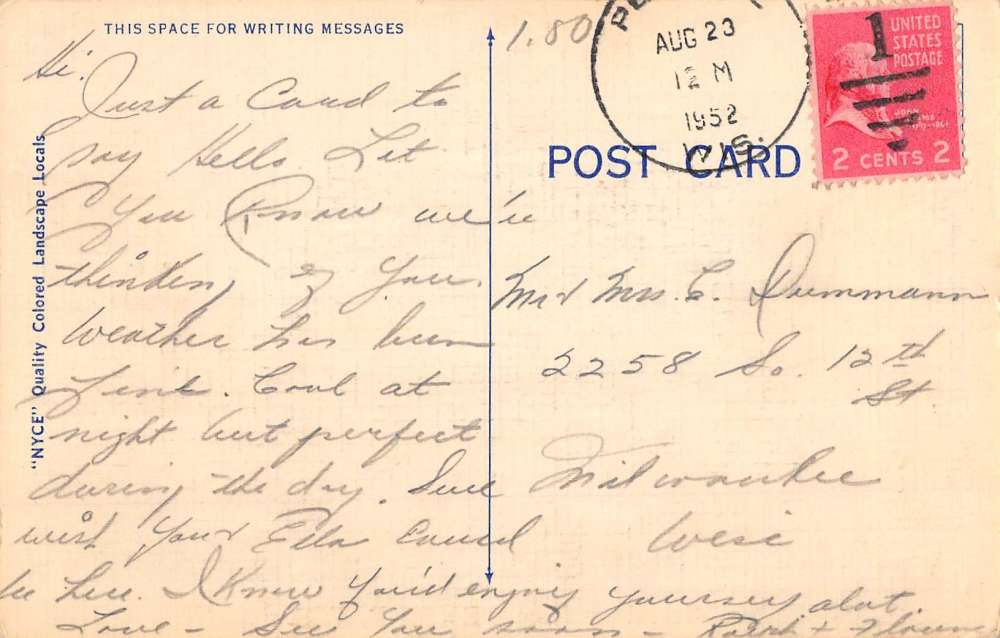 THIS SPACE FOR WRITING MESSAGES
1.80
AUG 23
12 M
1952
WIS.
1
UNITED
STATES
POSTAGE
2 CENTS 2
POST CARD
"NYCE" Quality Colored Landscape Locals
Hi.
Just a Card to
say Hello Let
You Know we're
thinking of You.
Weather has been
fine. Cool at
night but perfect
during the day. Sure
wish You & Ella could
be here. I Know You'd enjoy yourself alot.
Love - See You soon - Ralph &
Mr & Mrs. C. Dummann
2258 So. 12th
St
Milwaukee
Wisc